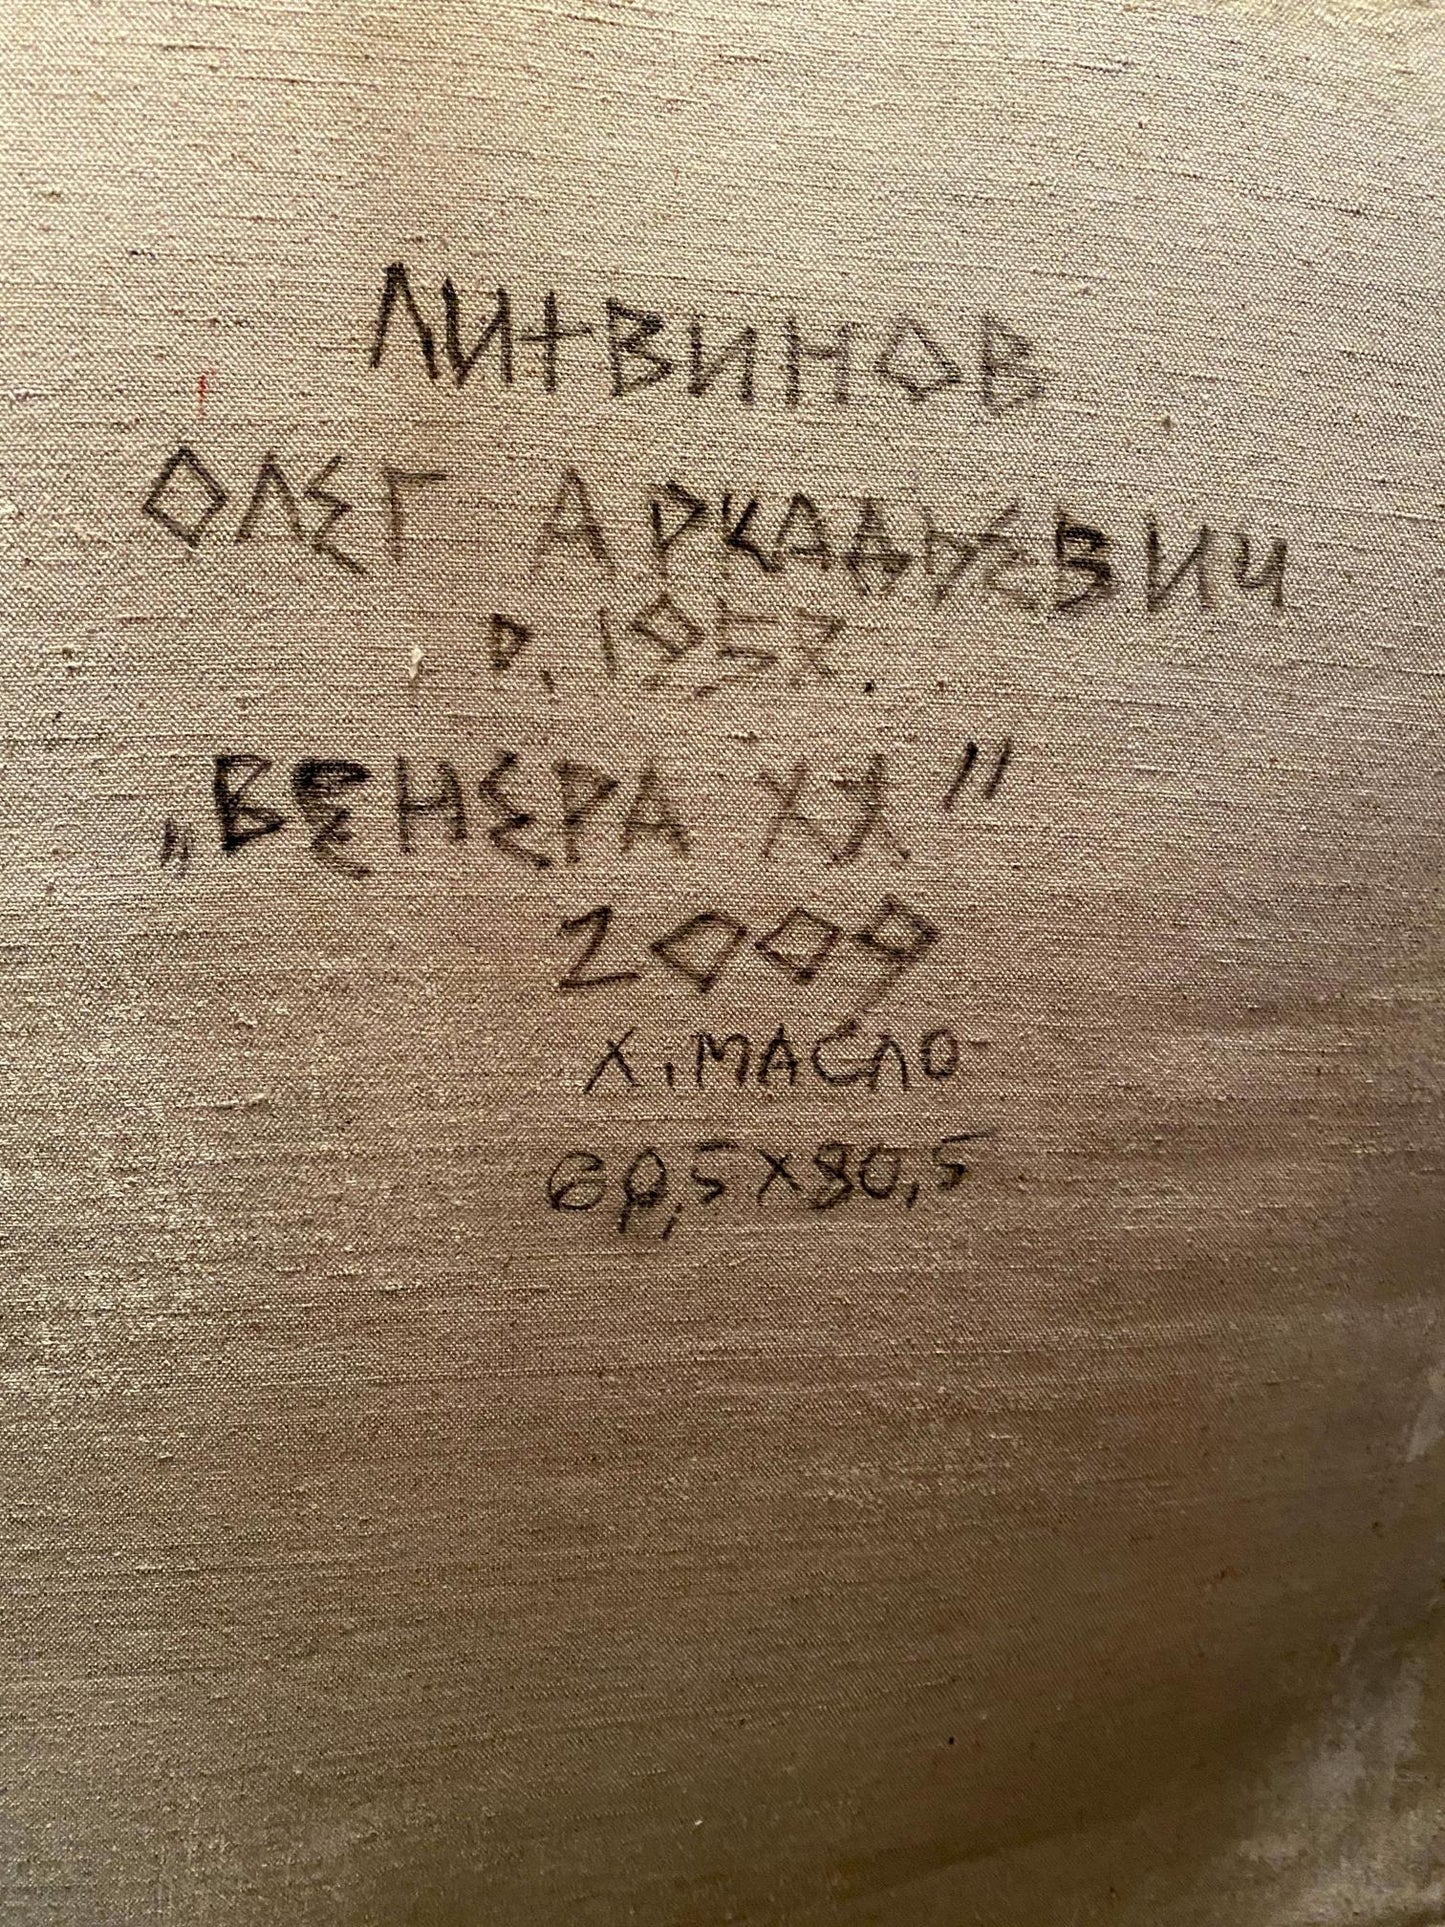 ЛИТВИНОВ
ОЛЕГ АРКАДЬЕВИЧ
Р. 1952.
„ВЕНЕРА ХХ"
2009
Х. МАСЛО
60,5Х80,5